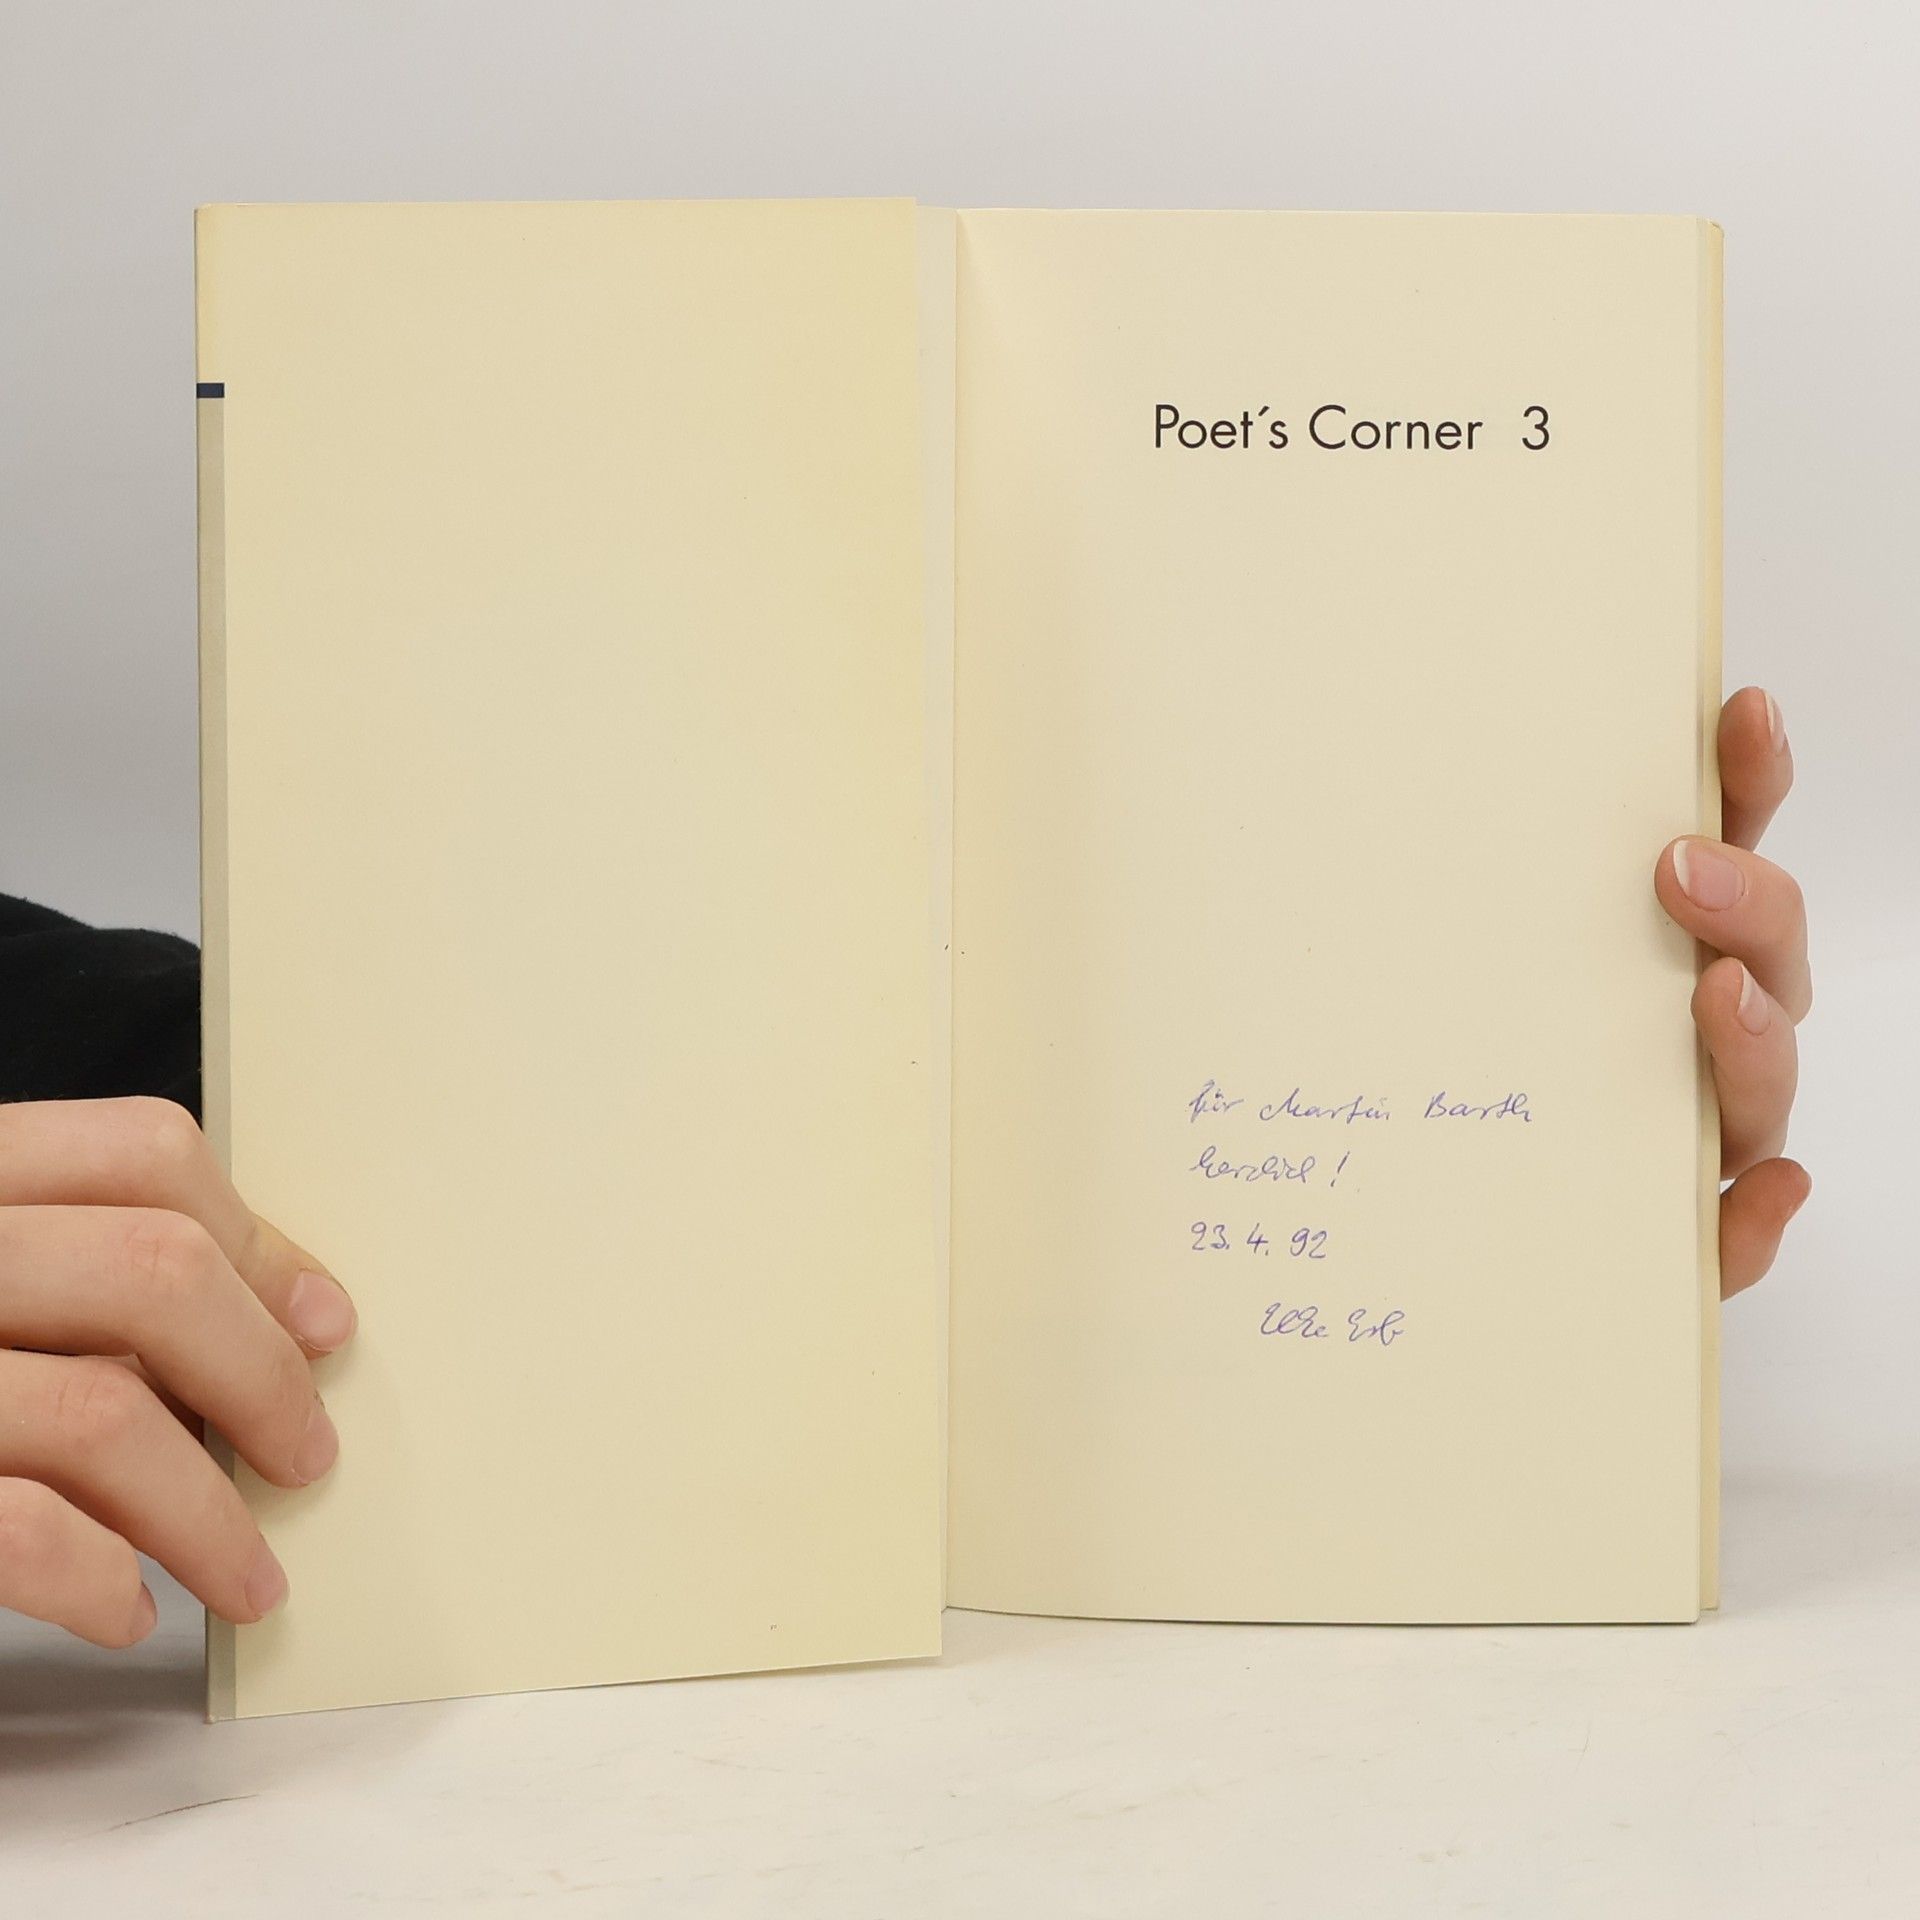 Poet´s Corner 3
für Martin Barth
herzlich !
23. 4. 92
Elke Erb